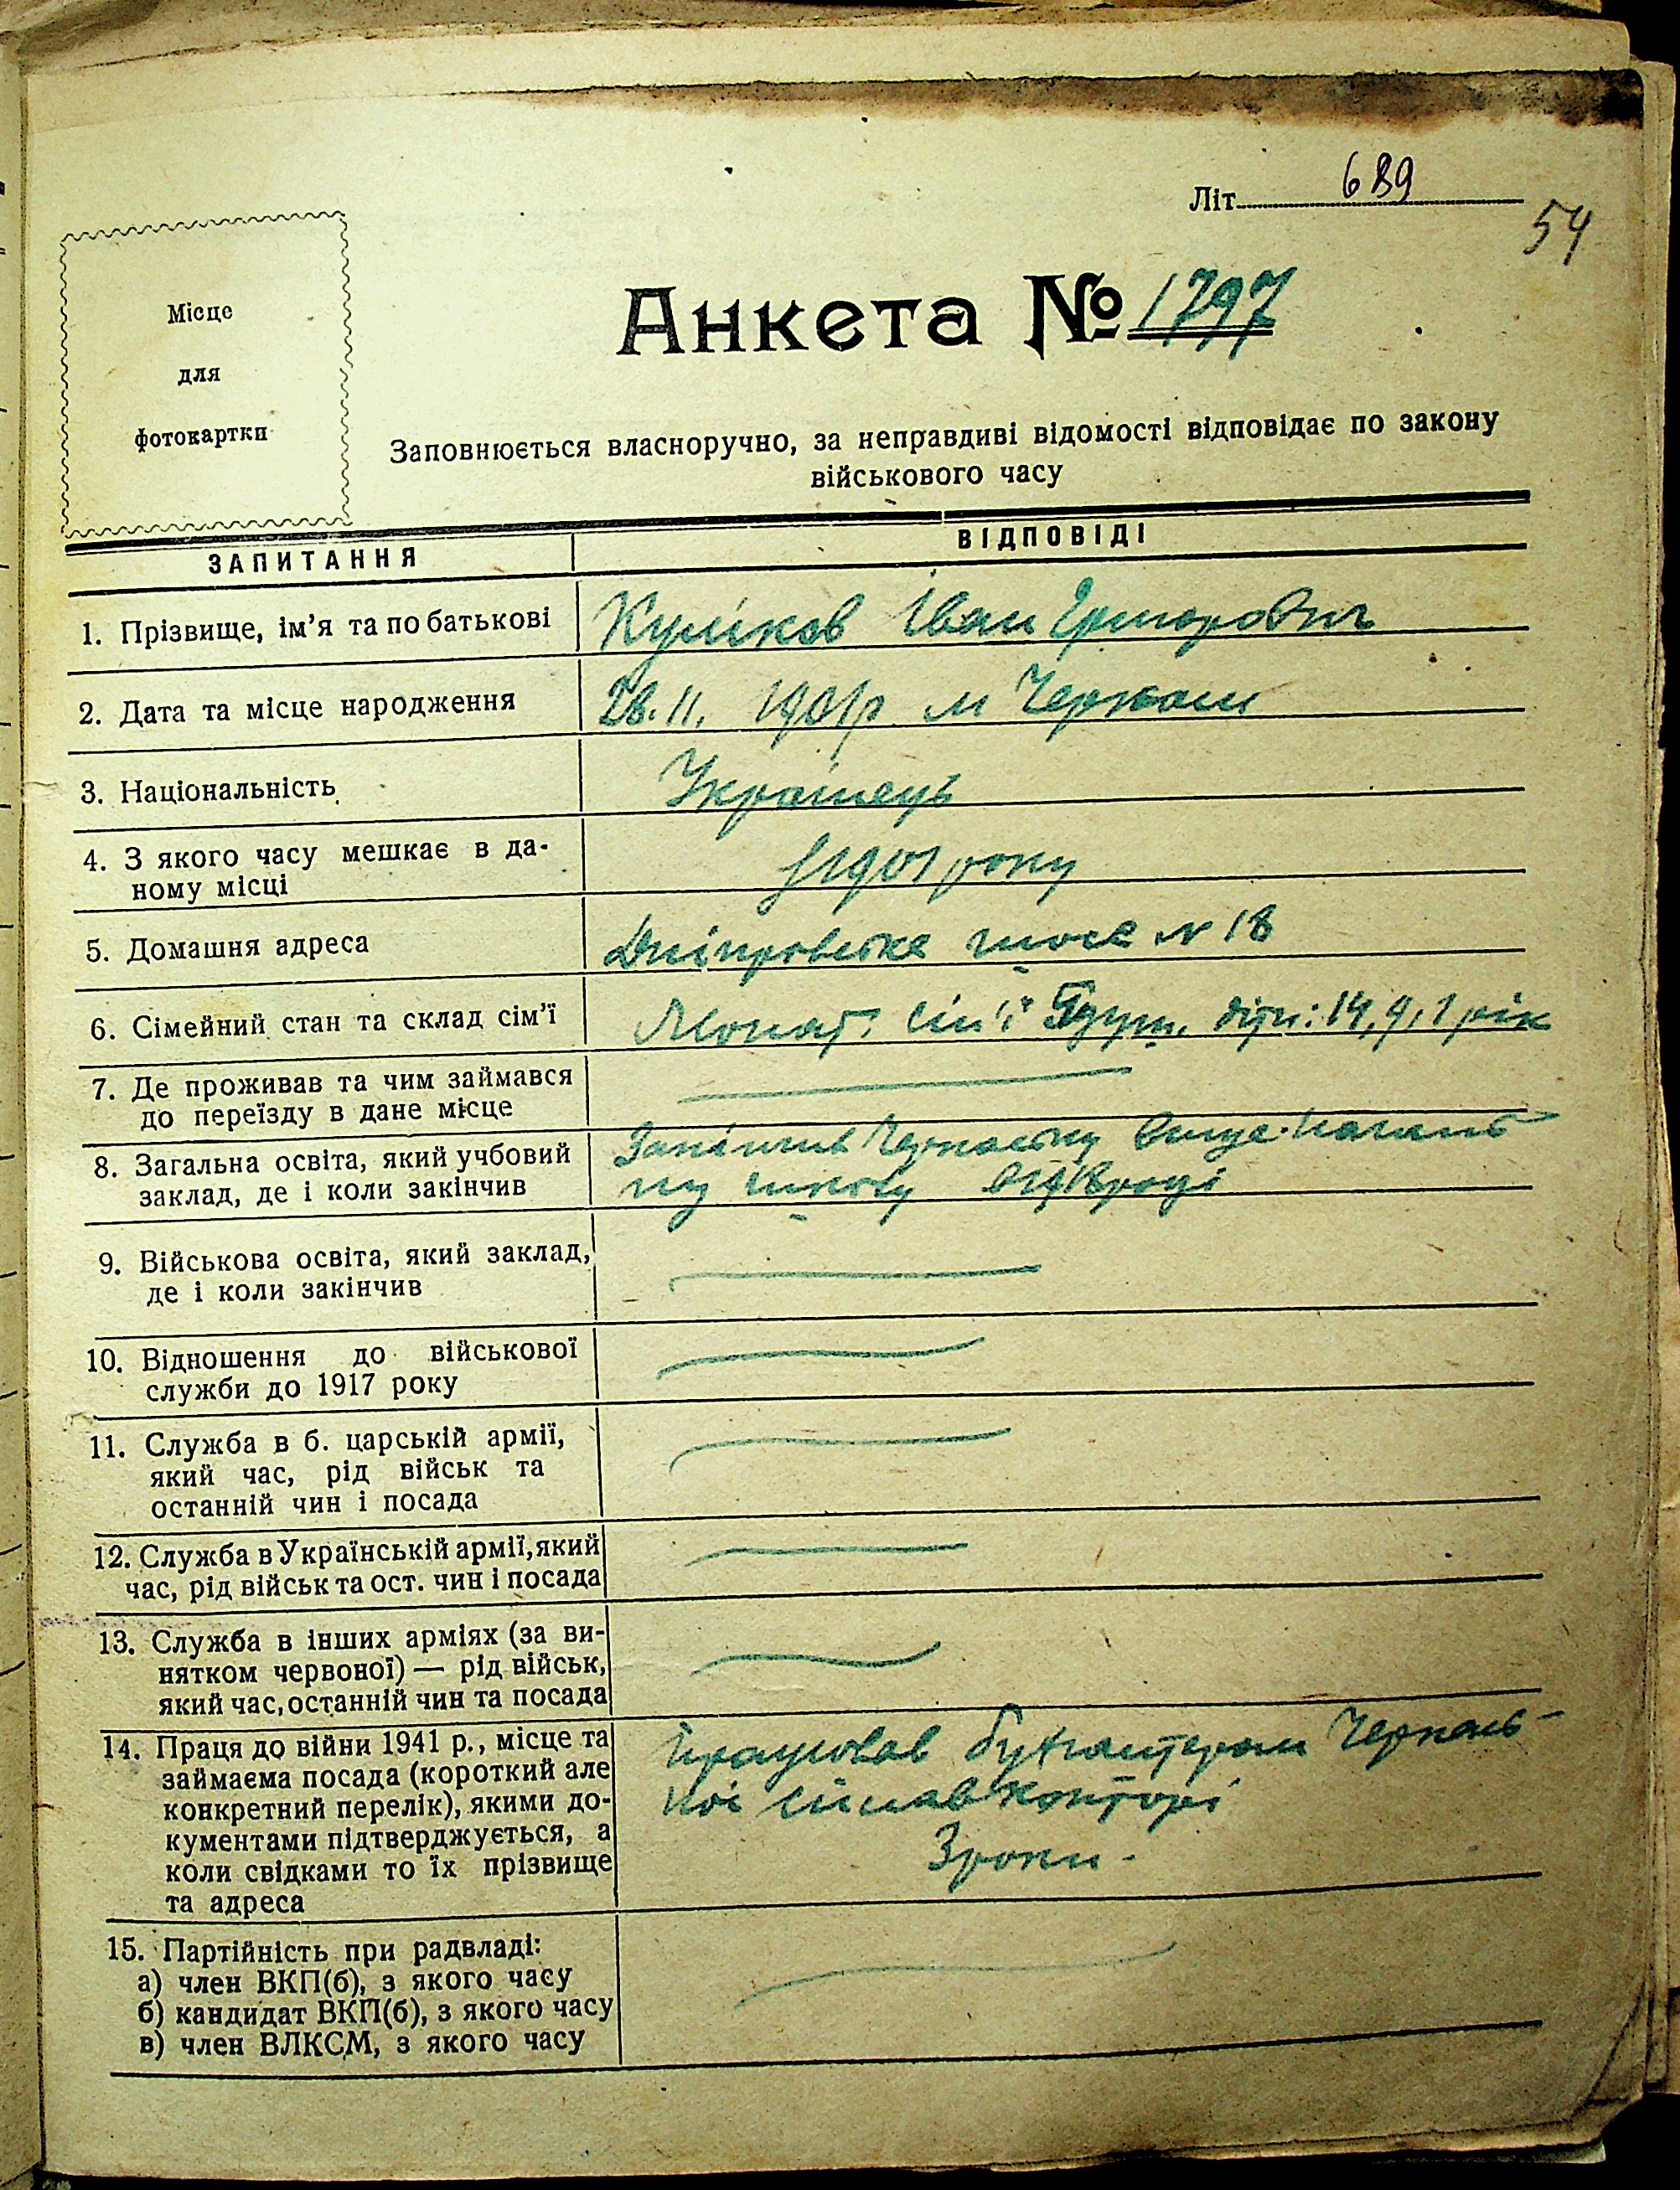 Літ. 689
54
Місце
для
фотокартки
Анкета № 1797
Заповнюється власноручно, за неправдиві відомості відповідає по закону
військового часу
ЗАПИТАННЯ
ВІДПОВІДІ
1. Прізвище, ім’я та по батькові
Куліков Іван
2. Дата та місце народження
28.11. 1901р. м Черкаси
3. Національність
Українець
4. З якого часу мешкає в да-
ному місці
З 1901 року
5. Домашня адреса
Дніпровське шосе № 18
6. Сімейний стан та склад сім’ї
Жонат. сім'ї душ, діти: 14, 9, 1 рік
7. Де проживав та чим займався
до переїзду в дане місце
8. Загальна освіта, який учбовий
заклад, де і коли закінчив
Закінчив Черкаську Вище-Началь
ну школу в 1918 році
9. Військова освіта, який заклад,
де і коли закінчив
10. Відношення до військової
служби до 1917 року
11. Служба в б. царській армії,
який час, рід військ та
останній чин і посада
12. Служба в Українській армії, який
час, рід військ та ост. чин і посада
13. Служба в інших арміях (за ви-
нятком червоної) — рід військ,
який час, останній чин та посада
14. Праця до війни 1941 р., місце та
займаєма посада (короткий але
конкретний перелік), якими до-
кументами підтверджується, а
коли свідками то їх прізвище
та адреса
Працював бухгалтером Черкась-
кої сплавконторі
3 роки.
15. Партійність при радвладі:
а) член ВКП(б), з якого часу
б) кандидат ВКП(б), з якого часу
в) член ВЛКСМ, з якого часу